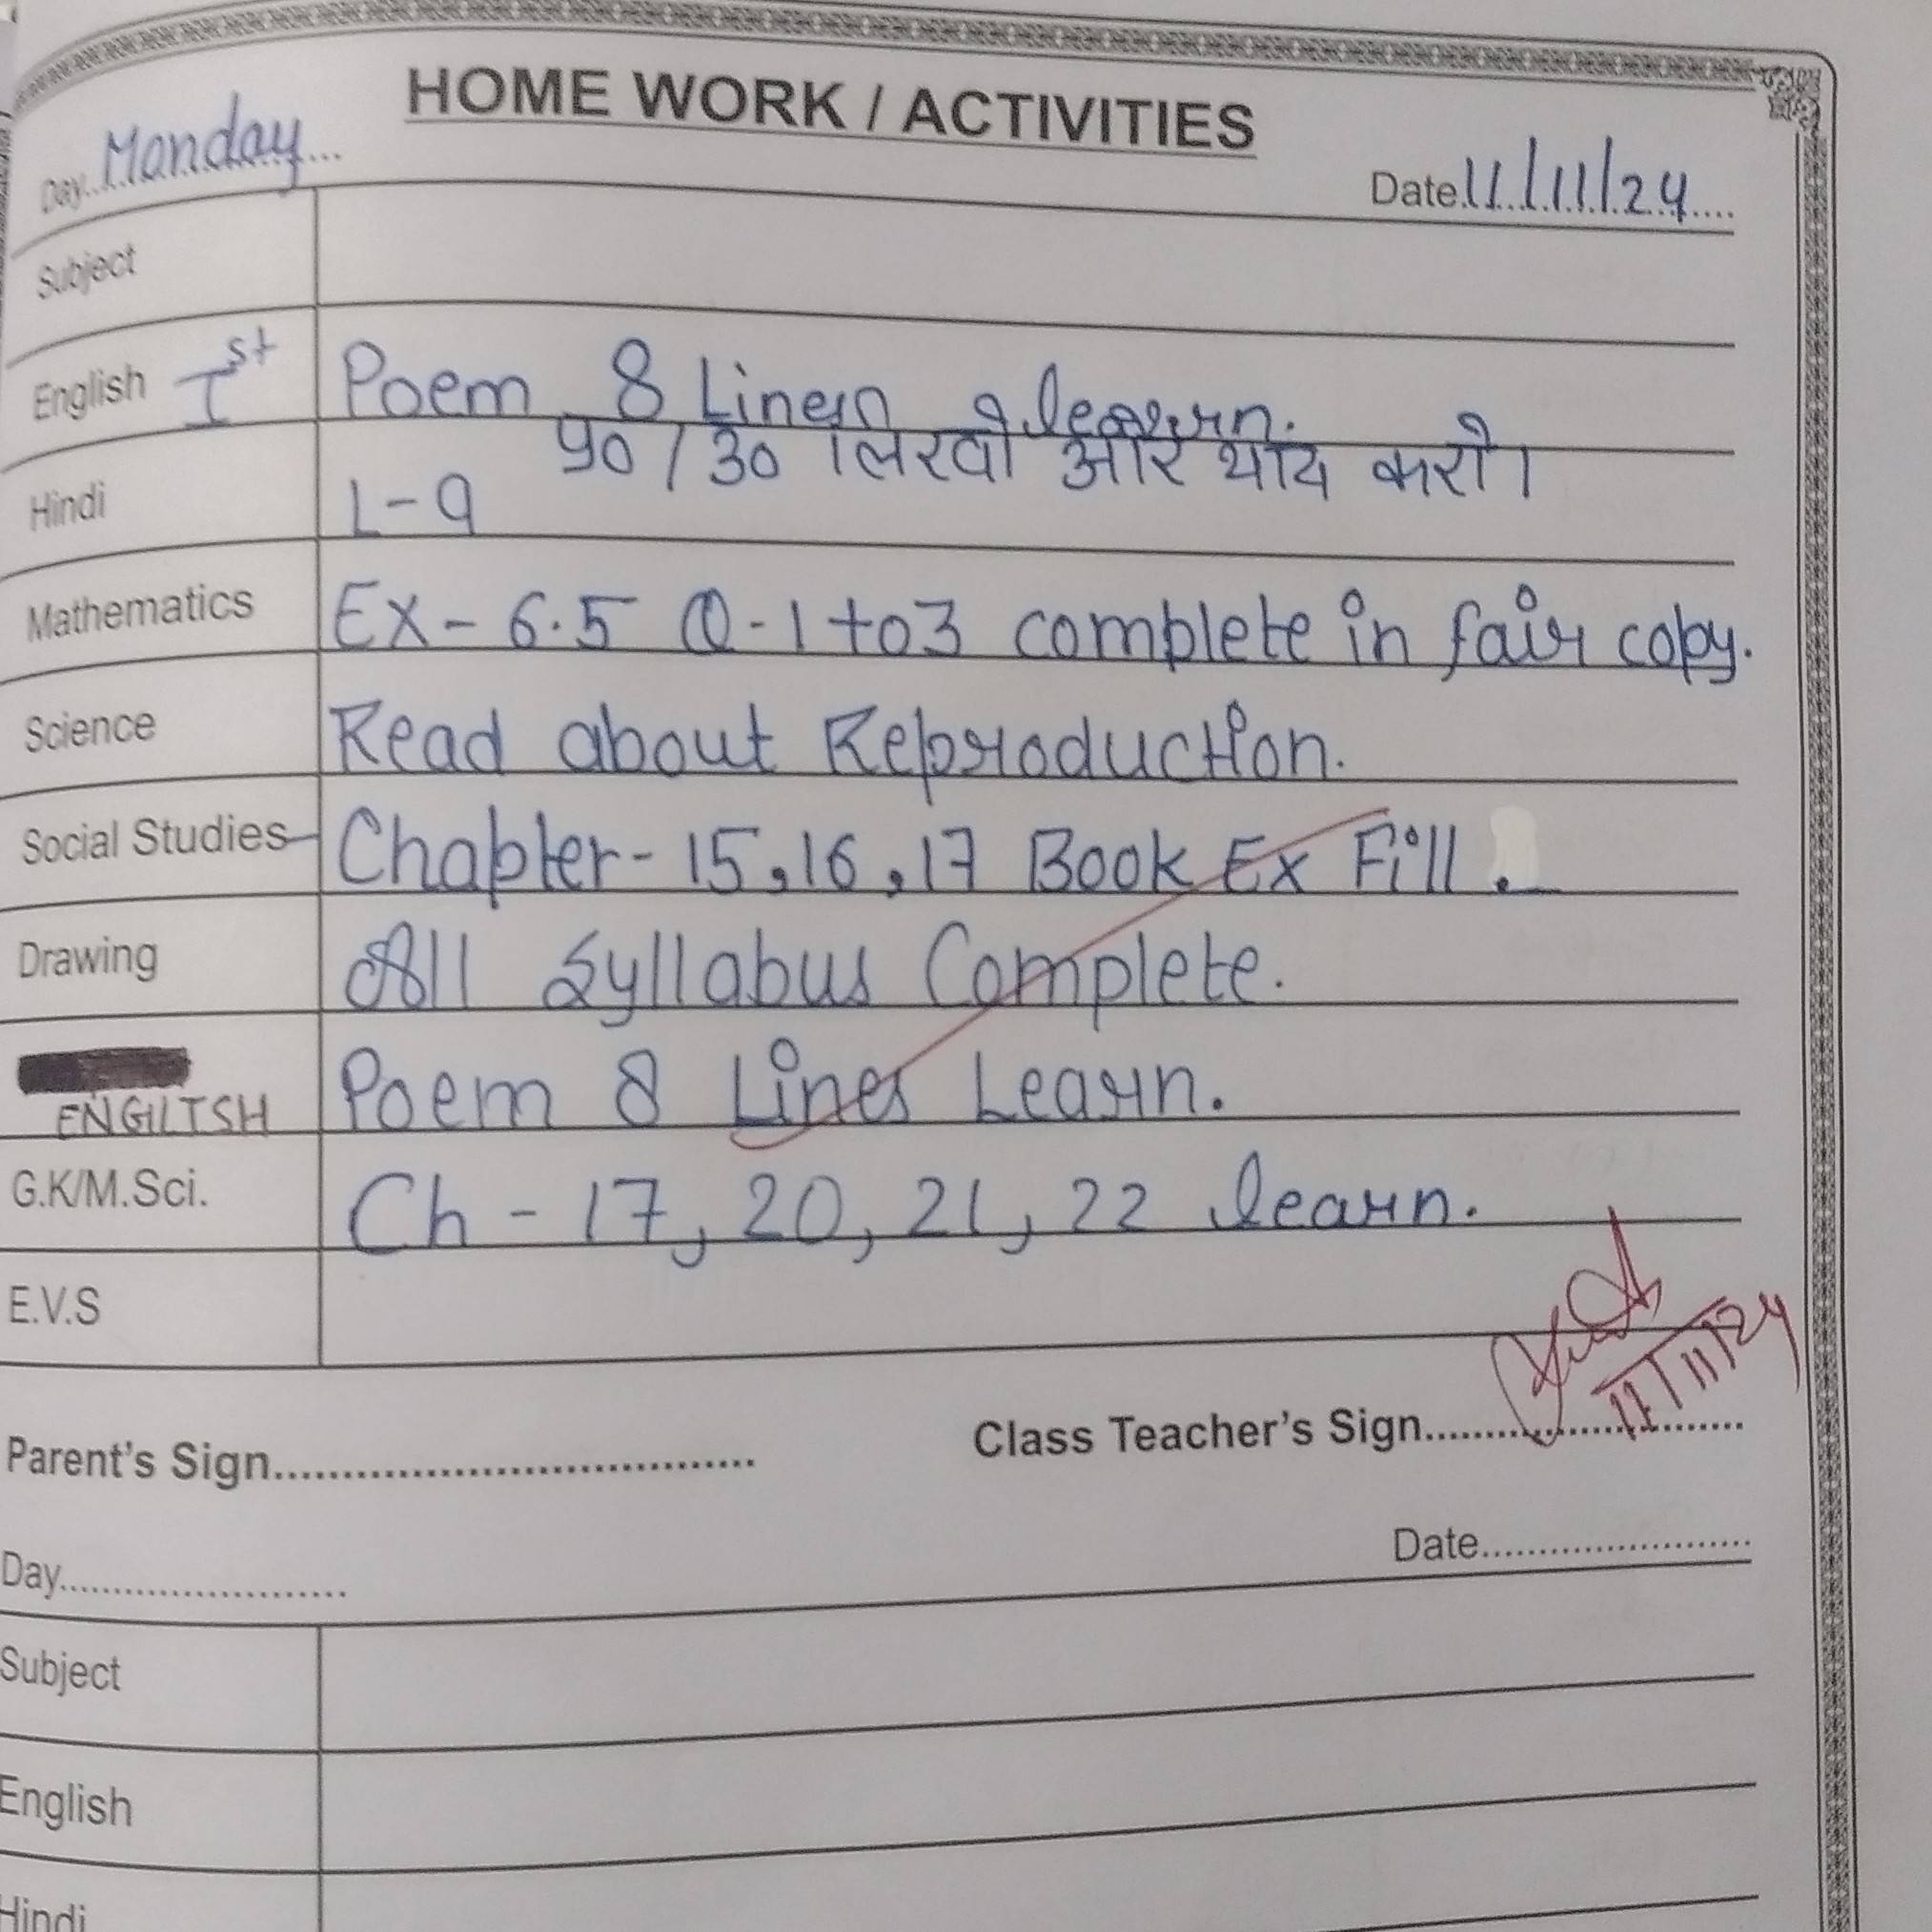 HOME WORK / ACTIVITIES
Day.. Monday...
Date. 11/11/24....
Subject
English Ist Poem 8 Lines learn.
Hindi L-9 प्र० / उ० लिखो और याद करो।
Mathematics Ex- 6.5 Q-1 to 3 complete in fair copy.
Science Read about Reproduction.
Social Studies Chapter- 15,16,17 Book Ex Fill.
Drawing All Syllabus Complete.
ENGILTSH Poem 8 Lines Learn.
G.K/M.Sci. Ch - 17, 20, 21, 22 learn.
E.V.S
Class Teacher's Sign.......... 11/11/24
Parent's Sign..................................
Date.......................
Day.......................
Subject
English
Hindi